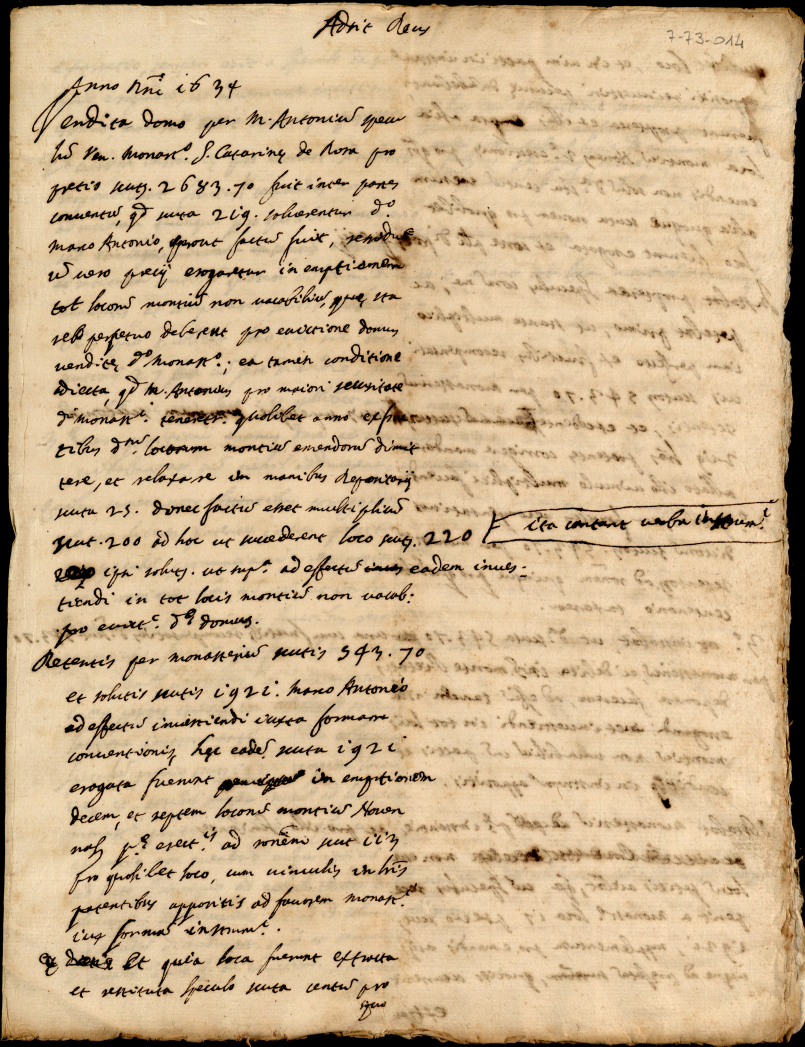 Adsit Deus
7-73-014
Anno Dñi 1634
Vendita domo per M. Antonium specu
lũ Ven. Monast.º S. Catarinę de Rosa pro
pretio scut. 2683.70 fuit inter partes
conventũ, qd scuta 219. solverentur d.º
Marco Antonio, prout factũ fuit, residuũ
vero pretij erogaretur in emptionem
tot locorũ montiũ non vacabiliũ, quę sta
re perpetuo deberent pro evictione domus
venditę d.º Monast.º; ea tamen conditione
adiecta, qd M. Antonius pro maiori securitate
d.i monast.i teneretr. quolibet anno ex fruc
tibus d.rum locorum montiũ emendorũ dimit
tere, et relaxare in manibus Depositarij
scuta 25. donec factũ esset multipliciũ
scut. 200 ad hoc ut succederent loco scut. 220
ipsi solut. ut sup.ª ad effectũ eadem inves-
tiendi in tot locis montiũ non vacab:
pro evict.e d.ę domus.
ita cantant verba instrum.ti
Retentis per monasteriũ scutis 543.70
et solutis scutis 1921. Marco Antonio
ad effectũ investiendi iuxta formam
conventionis, hęc eadẽ scuta 1921
erogata fuerunt in emptionem
decem, et septem locorũ montiũ Noven
nal p.ę erect.is ad ronẽm scut 113
pro quolibet loco, cum vinculis in lr̃is
patentibus appositis ad favorem monast.i
iux formã instrum.ti
Et quia loca fuerunt extracta
et restituta speculo scuta centũ pro
quo